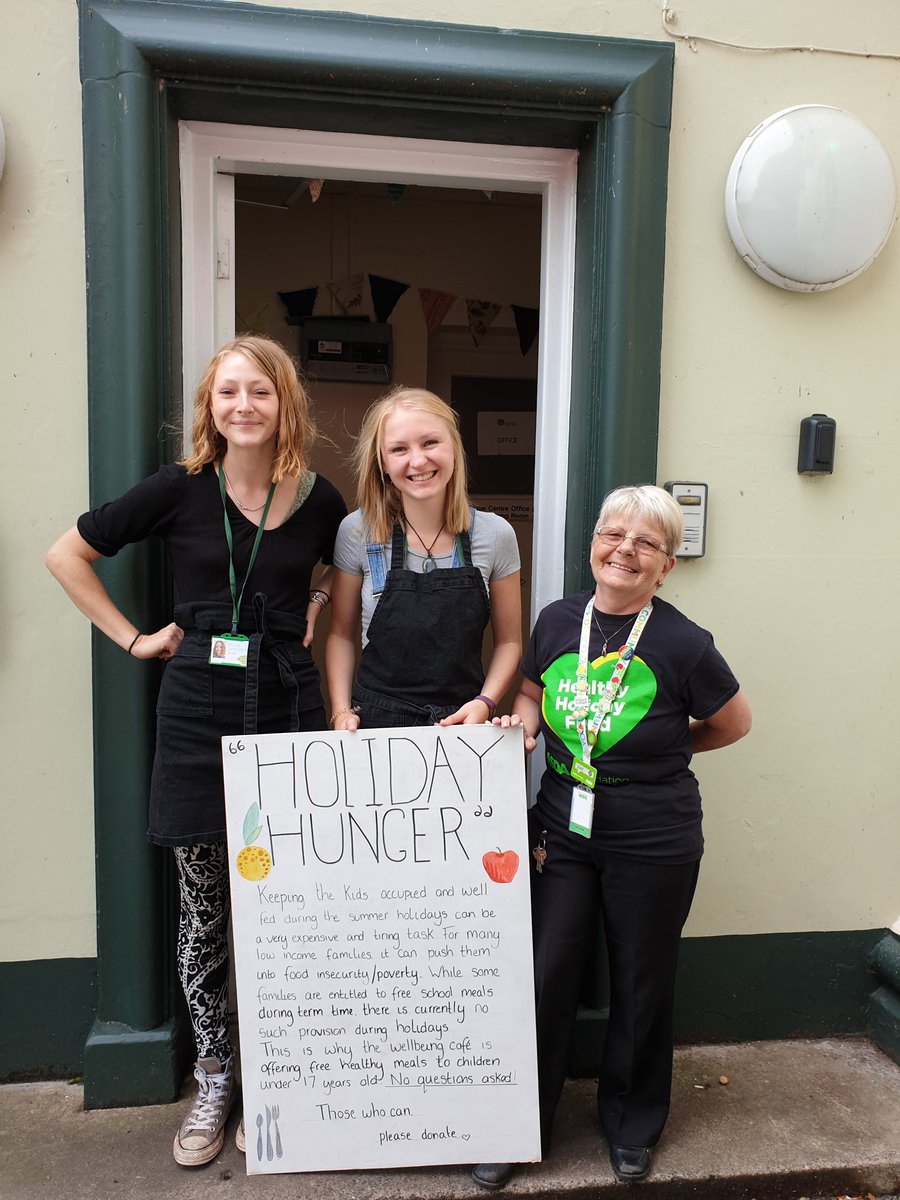 OFFICE
Centre Office
Room
Healthy
Holiday
Fund
ASDA Foundation
" HOLIDAY
HUNGER "
Keeping the kids occupied and well
fed during the summer holidays can be
a very expensive and tiring task. For many
low income families, it can push them
into food insecurity/poverty. While some
families are entitled to free school meals
during term time, there is currently no
such provision during holidays
This is why the wellbeing café is
offering free healthy meals to children
under 17 years old. No questions asked!
Those who can...
please donate ♡